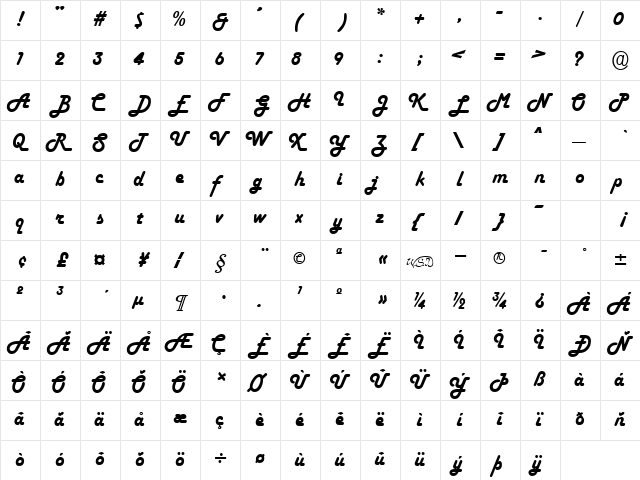 ! " # $ % & ' ( ) * + , - . / 0
1 2 3 4 5 6 7 8 9 : ; < = > ? @
A B C D E F G H I J K L M N O P
Q R S T U V W X Y Z [ \ ] ^ _ `
a b c d e f g h i j k l m n o p
q r s t u v w x y z { | } ~ ¡
¢ £ ¤ ¥ ¦ § ¨ © ª « ¬ ® ¯ ° ±
² ³ ´ µ ¶ · . ¹ º » ¼ ½ ¾ ¿ À Á
Â Ã Ä Å Æ Ç È É Ê Ë Ì Í Î Ï Ð Ñ
Ò Ó Ô Õ Ö × Ø Ù Ú Û Ü Ý Þ ß à á
â ã ä å æ ç è é ê ë ì í î ï ð ñ
ò ó ô õ ö ÷ ø ù ú û ü ý þ ÿ